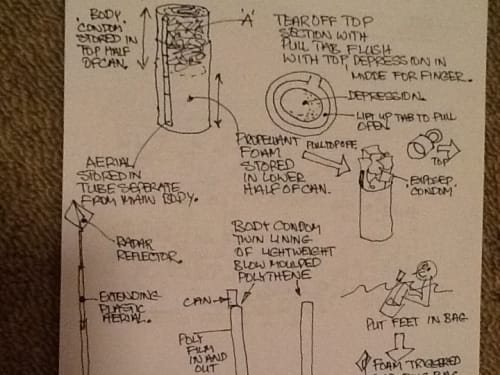 BODY
'CONDOM'
STORED IN
TOP HALF
OF CAN.
'A'
TEAR OFF TOP
SECTION WITH
PULL TAB FLUSH
WITH TOP, DEPRESSION IN
MIDDLE FOR FINGER.
DEPRESSION.
LIFT UP TAB TO PULL
OPEN.
PROPELLANT
FOAM
STORED
IN LOWER
HALF OF CAN.
PULL TOP OFF
TOP
EXPOSED
'CONDOM'
AERIAL
STORED IN
TUBE SEPERATE
FROM MAIN BODY.
RADAR
REFLECTOR.
EXTENDING
PLASTIC
AERIAL.
BODY CONDOM
TWIN LINING
OF LIGHTWEIGHT
BLOW MOULDED
POLYTHENE
CAN
POLY
FILM
IN AND
OUT
PUT FEET IN BAG
FOAM TRIGGERED